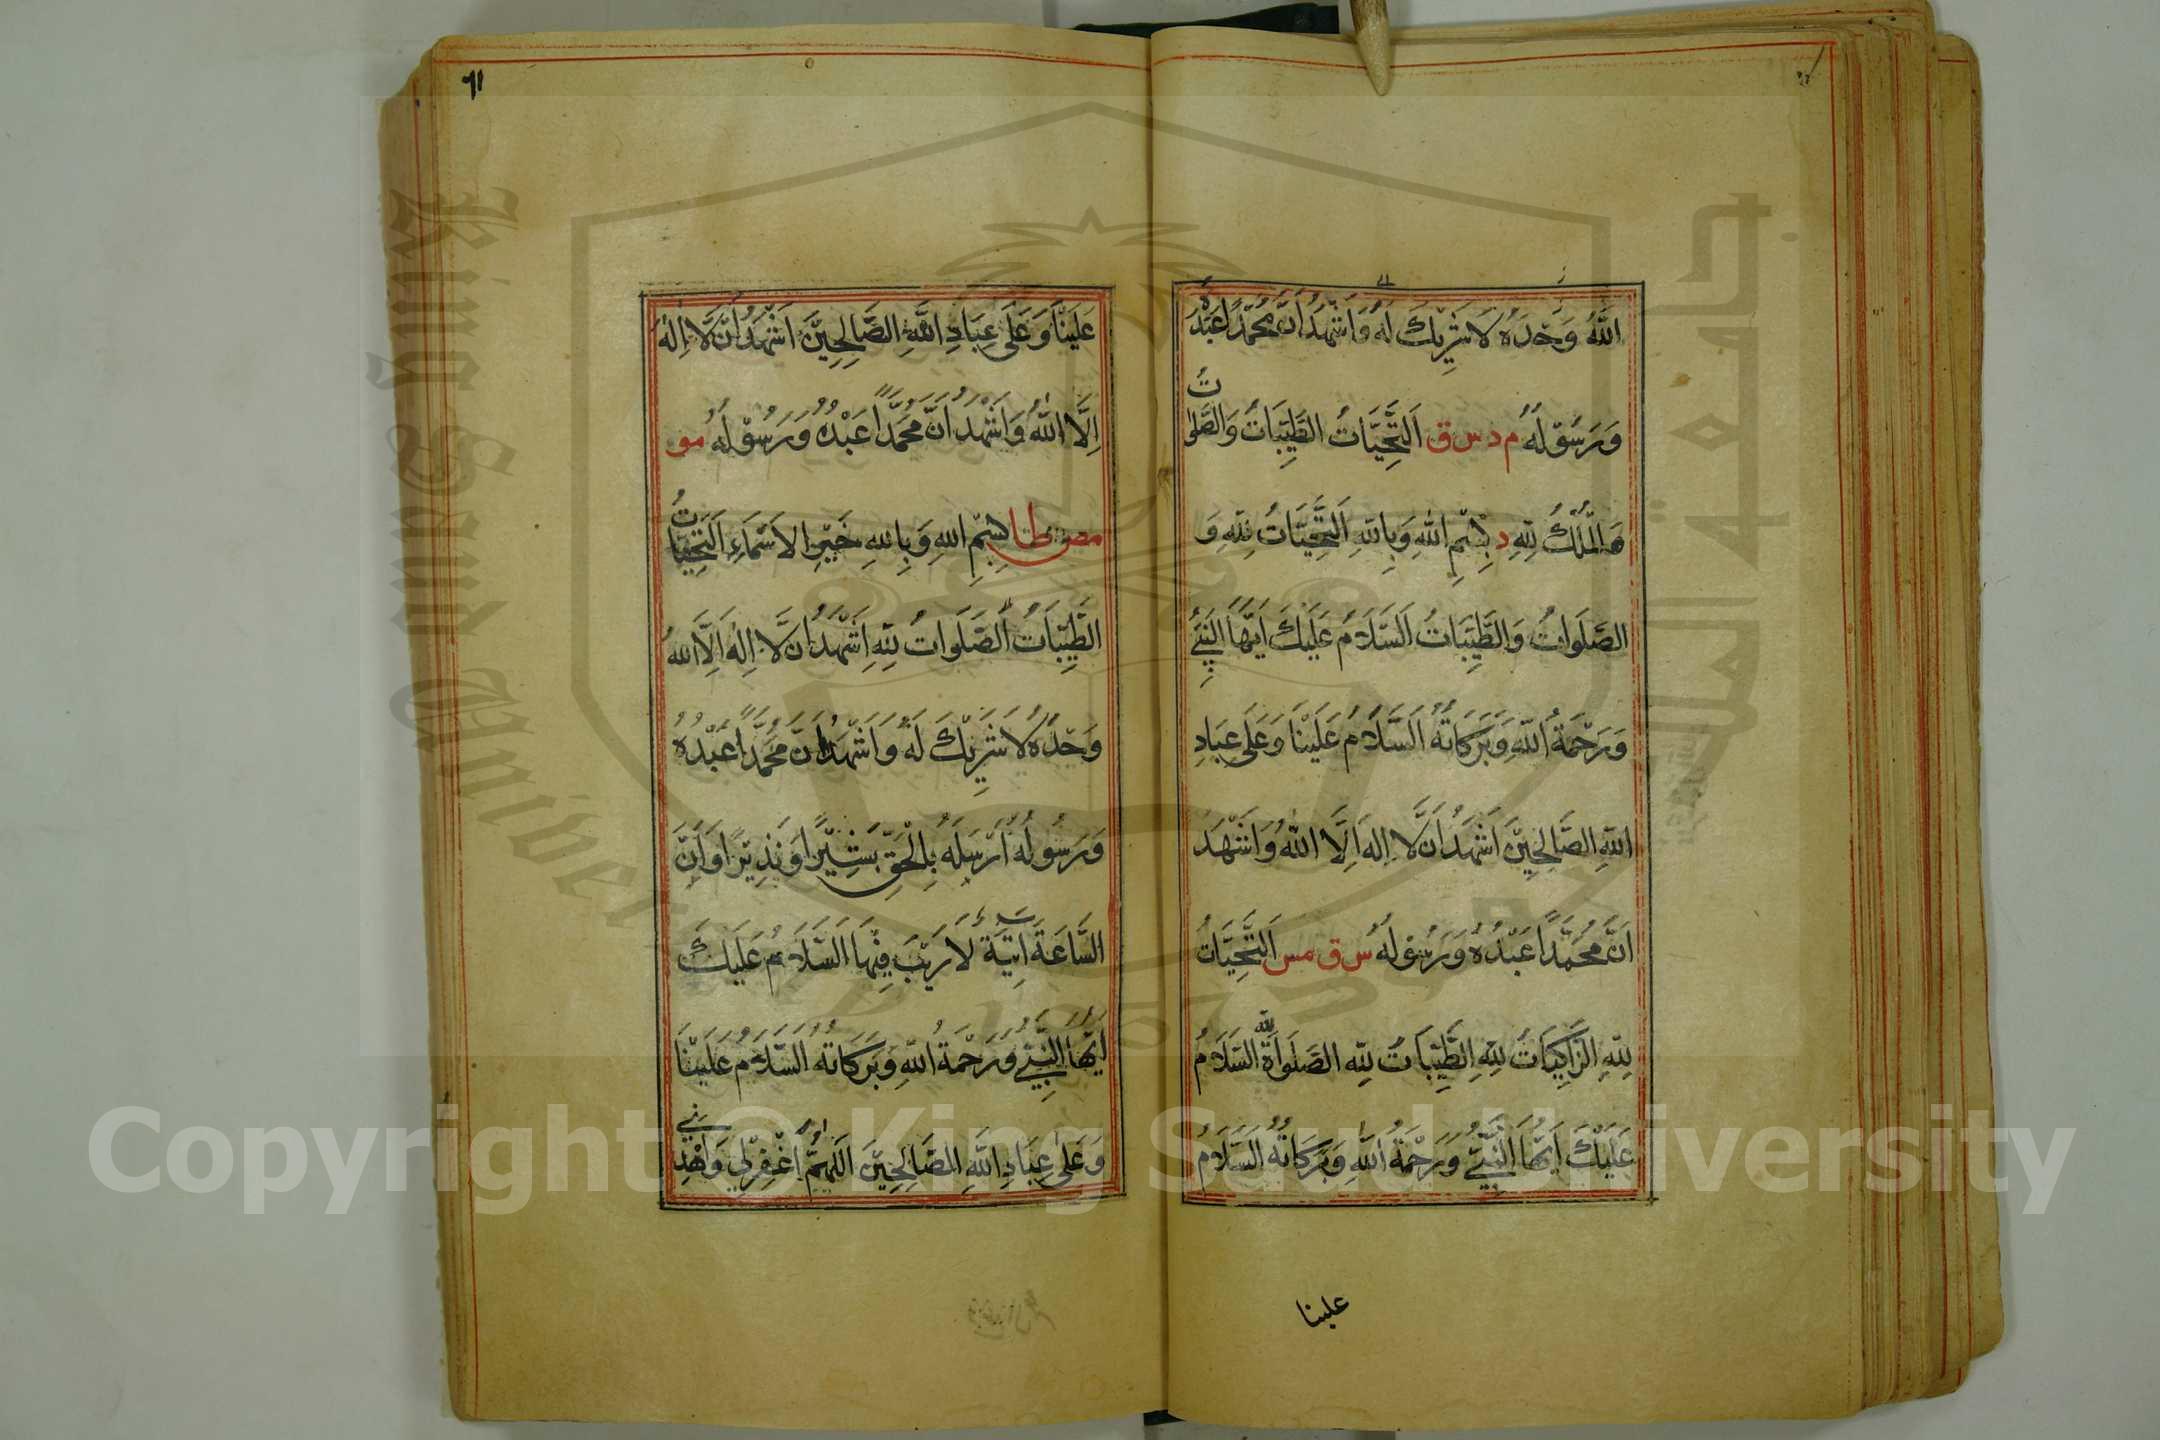 اللهُ وَحْدَهُ لَا شَرِيْكَ لَهُ وَاَشْهَدُ اَنَّ مُحَمَّدًا عَبْدُهُ
وَرَسُوْلُهُ م د س ق اَلتَّحِيَّاتُ الطَّيِّبَاتُ وَالصَّلَوَاتُ
وَالْمُلْكُ لِلّٰهِ د بِسْمِ اللهِ وَبِاللهِ اَلتَّحِيَّاتُ لِلّٰهِ وَ
الصَّلَوَاتُ وَالطَّيِّبَاتُ اَلسَّلَامُ عَلَيْكَ اَيُّهَا النَّبِيُّ
وَرَحْمَةُ اللهِ وَبَرَكَاتُهُ اَلسَّلَامُ عَلَيْنَا وَعَلَى عِبَادِ
اللهِ الصَّالِحِيْنَ اَشْهَدُ اَنْ لَّا اِلٰهَ اِلَّا اللهُ وَاَشْهَدُ
اَنَّ مُحَمَّدًا عَبْدُهُ وَرَسُوْلُهُ س ق مس اَلتَّحِيَّاتُ
لِلّٰهِ الزَّاكِيَاتُ لِلّٰهِ الطَّيِّبَاتُ لِلّٰهِ الصَّلَوَاةُ لِلّٰهِ السَّلَامُ
عَلَيْكَ اَيُّهَا النَّبِيُّ وَرَحْمَةُ اللهِ وَبَرَكَاتُهُ السَّلَامُ
علينا
٦١
عَلَيْنَا وَعَلَى عِبَادِ اللهِ الصَّالِحِيْنَ اَشْهَدُ اَنْ لَّا اِلٰهَ
اِلَّا اللهُ وَاَشْهَدُ اَنَّ مُحَمَّدًا عَبْدُهُ وَرَسُوْلُهُ مو
مص طا بِسْمِ اللهِ وَبِاللهِ خَيْرِ الْاَسْمَاءِ اَلتَّحِيَّاتُ
الطَّيِّبَاتُ الصَّلَوَاتُ لِلّٰهِ اَشْهَدُ اَنْ لَّا اِلٰهَ اِلَّا اللهُ
وَحْدَهُ لَا شَرِيْكَ لَهُ وَاَشْهَدُ اَنَّ مُحَمَّدًا عَبْدُهُ
وَرَسُوْلُهُ اَرْسَلَهُ بِالْحَقِّ بَشِيْرًا وَنَذِيْرًا وَاَنَّ
السَّاعَةَ اٰتِيَةٌ لَا رَيْبَ فِيْهَا اَلسَّلَامُ عَلَيْكَ
اَيُّهَا النَّبِيُّ وَرَحْمَةُ اللهِ وَبَرَكَاتُهُ السَّلَامُ عَلَيْنَا
وَعَلَى عِبَادِ اللهِ الصَّالِحِيْنَ اَللّٰهُمَّ اغْفِرْ لِيْ وَاهْدِنِيْ
King Saud University
جامعة الملك سعود
1957
Copyright © King Saud University